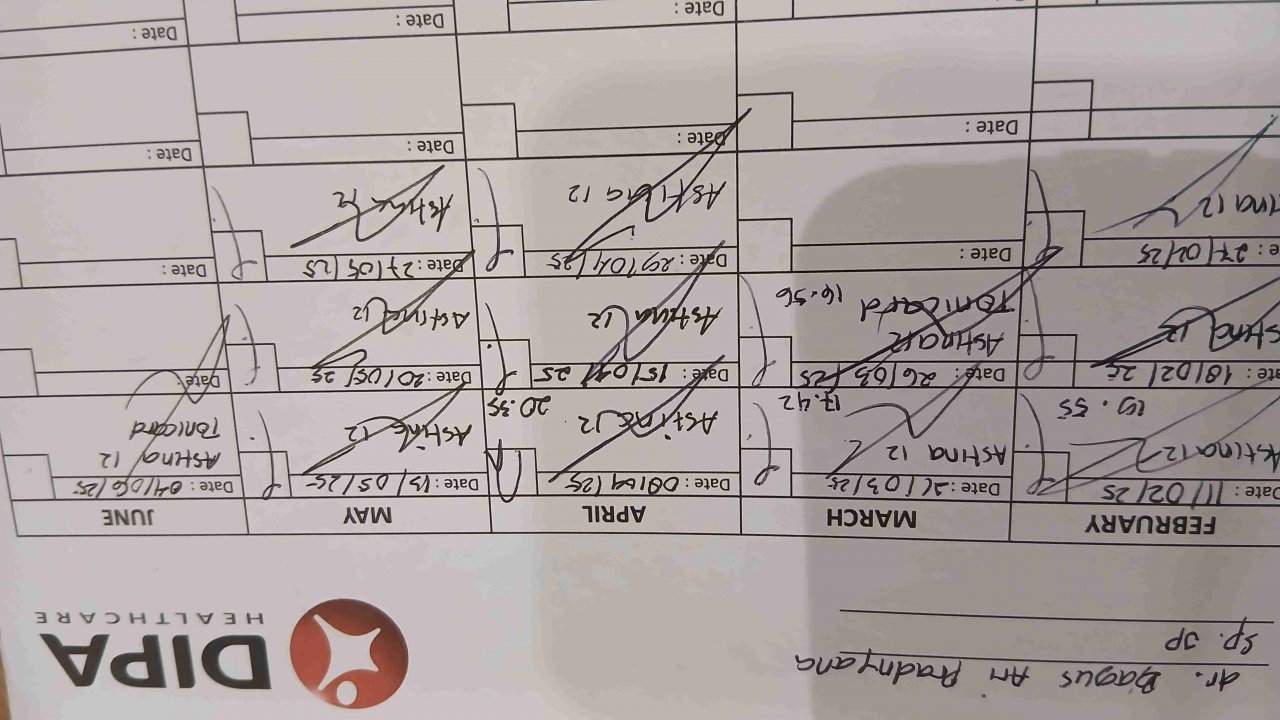 dr. Bagus Ari Pradnyana
Sp. JP
DIPA
HEALTHCARE
FEBRUARY MARCH APRIL MAY JUNE
Date: 11/02/25 Date: 21/03/25 Date: 08/04/25 Date: 13/05/25 Date: 04/06/25
Astina 12 Astina 12 Astina 12 Astina 12 Astina 12
Tonicard
19.55 17.42 20.35
Date: 18/02/25 Date: 26/03/25 Date: 15/04/25 Date: 20/05/25 Date:
Astina 12 Astina 12 Astina 12 Astina 12
Tonicard 16.56
Date: 27/02/25 Date: Date: 29/04/25 Date: 27/05/25 Date:
Astina 12 Astina 12 Astina 12
Date: Date: Date: Date:
Date: Date: Date: